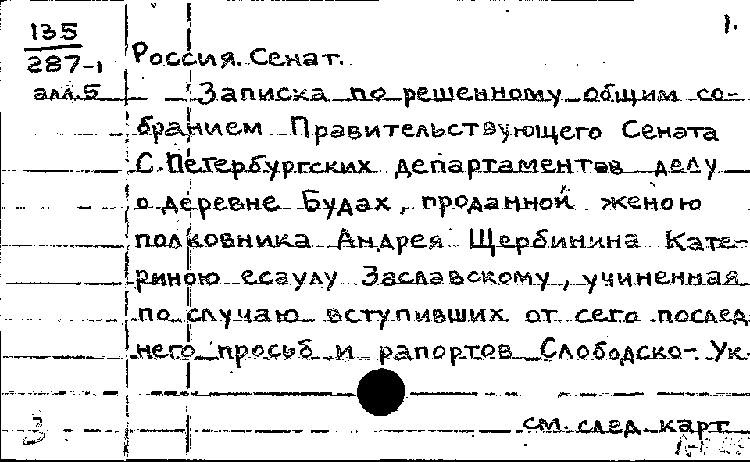 1.
135
287-1
алл.5
Россия. Сенат.
Записка по решенному общим со-
бранием Правительствующего Сената
С.Петербургских департаментов делу
о деревне Будах, проданной женою
полковника Андрея Щербинина Кате-
риною есаулу Заславскому, учиненная
по случаю вступивших от сего послед
него просьб и рапортов Слободско-Ук
3
см. след. карт